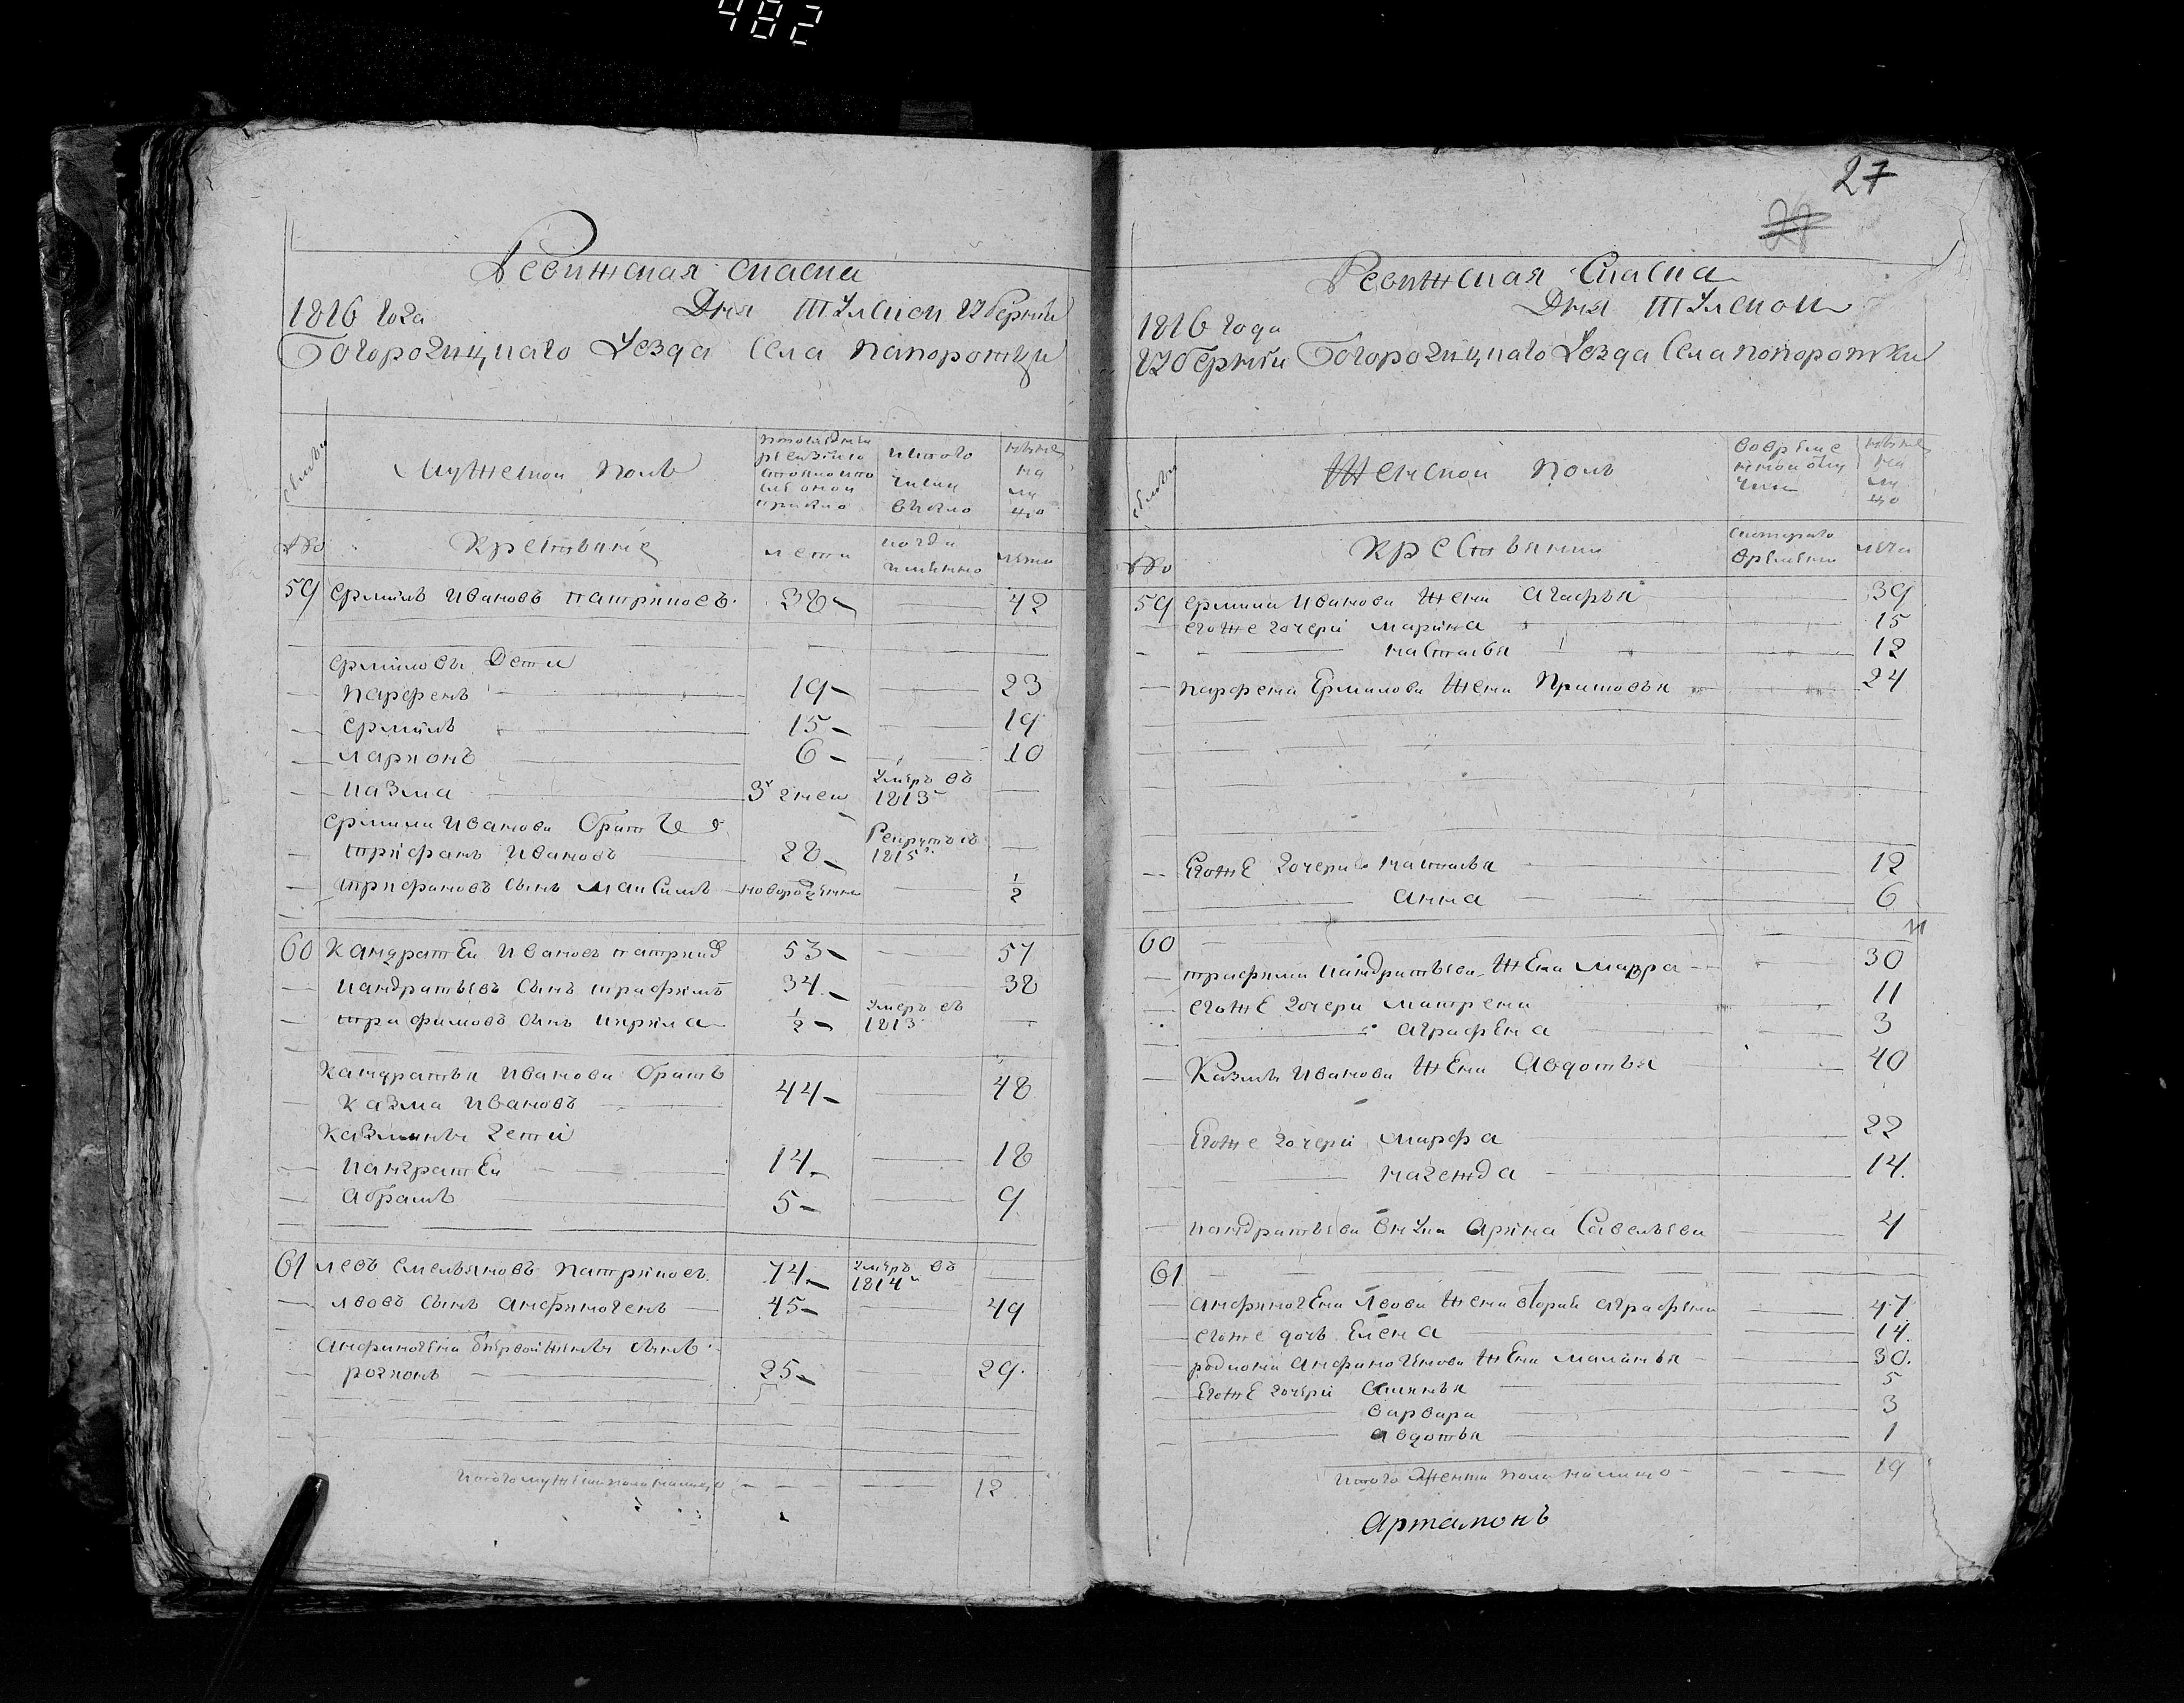 482
Ревижская спаска
1816 года Дня Тулской Губерний
Богородицкаго Уезда Села папоротки
семьи
мужескои полъ
последнея ревизiи состояло
исъ того числа выбыло
ныне на лицо
№
Крестьяне
лета
когда именно
лета
59 Ермилъ Ивановъ патрикѣевъ 38 42
Ермиловы Дети
Парфенъ 19 23
Ермилъ 15 19
Ларионъ 6 10
Казма 3х днеи умеръ въ 1813м
Ермила Иванова братья
Трифанъ Ивановъ 28 Рекрутъ съ 1815г
Трифановъ сынъ Максимъ новорожденн 1/2
60 Кандратеи Ивановъ патрикѣ 53 57
Кандратьевъ сынъ трафимъ 34 38
трафимовъ сынъ кирила 1/2 умеръ въ 1813
Кандратья Иванова братъ
Казма Ивановъ 44 48
Казмины дети
Кандратеи 14 18
Абрамъ 5 9
61 Левъ Емельяновъ патрикоевъ 74 умеръ въ 1814м
Львовъ сынъ Анфиногенъ 45 49
Анфиногена первой жены сынъ
родионъ 25 29
Итого мужеска пола налицо 12
27
28
Ревижская Спаска
1816 года Дня Тулской
Губернiи Богородицкаго Уезда Села папоротки
семьи
Женской полъ
во временной отлучки
ныне на лицо
№
Крестьянки
с котораго времени
лета
59 Ермила Иванова жена Агафья 39
его же дочери Марина 15
Настасья 12
Парфена Ермилова жена Присковья 24
Его же дочери Настасья 12
Анна 6
60
трафима Кандратьева жена Марфа 30
его же дочери Матрена 11
Аграфена 3
Казмы Иванова жена Авдотья 40
Его же дочери Марфа 22
надежда 14
Кандратьева внука Арина Савельева 4
61
Анфиногена Львова жена вторая Аграфена 47
его же дочь Елена 14
родиона Анфиногенова жена Маланья 30
Его же дочери Аксинья 5
Варвара 3
Авдотья 1
Итого женска пола налицо 19
Артамонъ